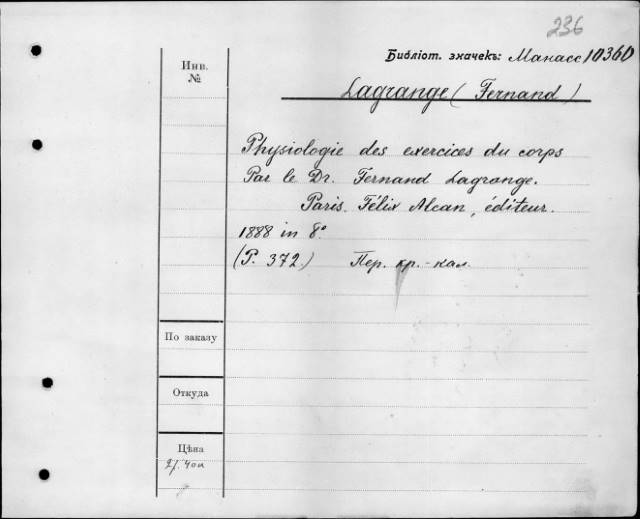 236
Библіот. значекъ: Манасс 10360
Инв. №
Lagrange (Fernand)
Physiologie des exercices du corps
Par le Dr. Fernand Lagrange.
Paris. Félix Alcan, éditeur.
1888 in 8°.
(P. 372.) Пер. кр.-кал.
По заказу
Откуда
Цѣна